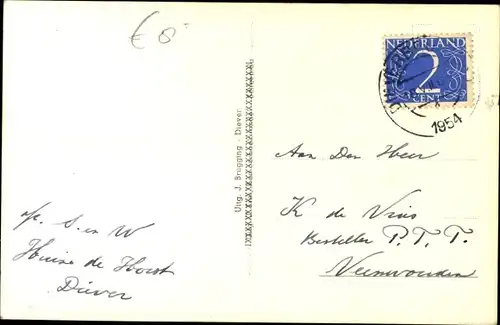 € 8
NEDERLAND
2
CENT
1954
Uitg. J. Brugging - Diever
Aan Den Heer
K de Vries
Besteller P.T.T.
Veenwouden
S. en W
Huize de Horst
Diever